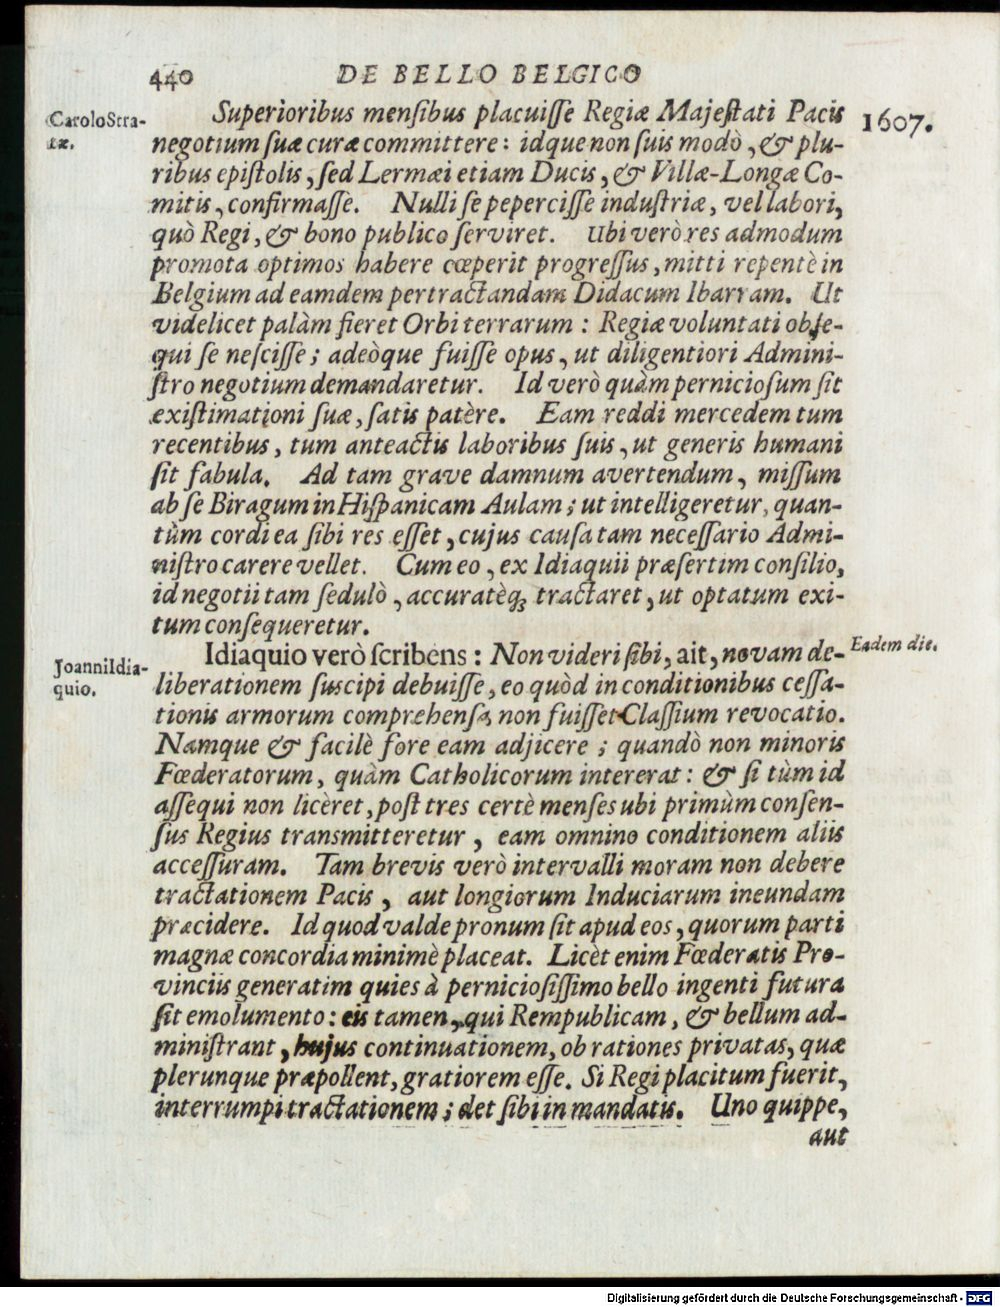 440 DE BELLO BELGICO
CaroloStra-
tæ.
1607.
Superioribus mensibus placuisse Regiæ Majestati Pacis
negotium suæ curæ committere: idque non suis modò, & plu-
ribus epistolis, sed Lermæi etiam Ducis, & Villæ-Longæ Co-
mitis, confirmasse. Nulli se pepercisse industriæ, vel labori,
quò Regi, & bono publico serviret. Ubi verò res admodum
promota optimos habere cœperit progressus, mitti repentè in
Belgium ad eamdem pertractandam Didacum Ibarram. Ut
videlicet palàm fieret Orbi terrarum: Regiæ voluntati obse-
qui se nescisse; adeòque fuisse opus, ut diligentiori Admini-
stro negotium demandaretur. Id verò quàm perniciosum sit
existimationi suæ, satis patère. Eam reddi mercedem tum
recentibus, tum anteactis laboribus suis, ut generis humani
sit fabula. Ad tam grave damnum avertendum, missum
ab se Biragum in Hispanicam Aulam; ut intelligeretur, quan-
tùm cordi ea sibi res esset, cujus causa tam necessario Admi-
nistro carere vellet. Cum eo, ex Idiaquii præsertim consilio,
id negotii tam sedulò, accuratèq; tractaret, ut optatum exi-
tum consequeretur.
JoanniIdia-
quio.
Eadem die.
Idiaquio verò scribens: Non videri sibi, ait, novam de-
liberationem suscipi debuisse, eo quòd in conditionibus cessa-
tionis armorum comprehensa non fuisset Classium revocatio.
Namque & facilè fore eam adjicere; quandò non minoris
Fœderatorum, quàm Catholicorum intererat: & si tùm id
assequi non licèret, post tres certè menses ubi primùm consen-
sus Regius transmitteretur, eam omnino conditionem aliis
accessuram. Tam brevis verò intervalli moram non debere
tractationem Pacis, aut longiorum Induciarum ineundam
præcidere. Id quod valde pronum sit apud eos, quorum parti
magnæ concordia minimè placeat. Licèt enim Fœderatis Pro-
vinciis generatim quies à perniciosissimo bello ingenti futura
sit emolumento: eis tamen, qui Rempublicam, & bellum ad-
ministrant, hujus continuationem, ob rationes privatas, quæ
plerunque præpollent, gratiorem esse. Si Regi placitum fuerit,
interrumpi tractationem; det sibi in mandatis. Uno quippe,
aut
Digitalisierung gefördert durch die Deutsche Forschungsgemeinschaft - DFG